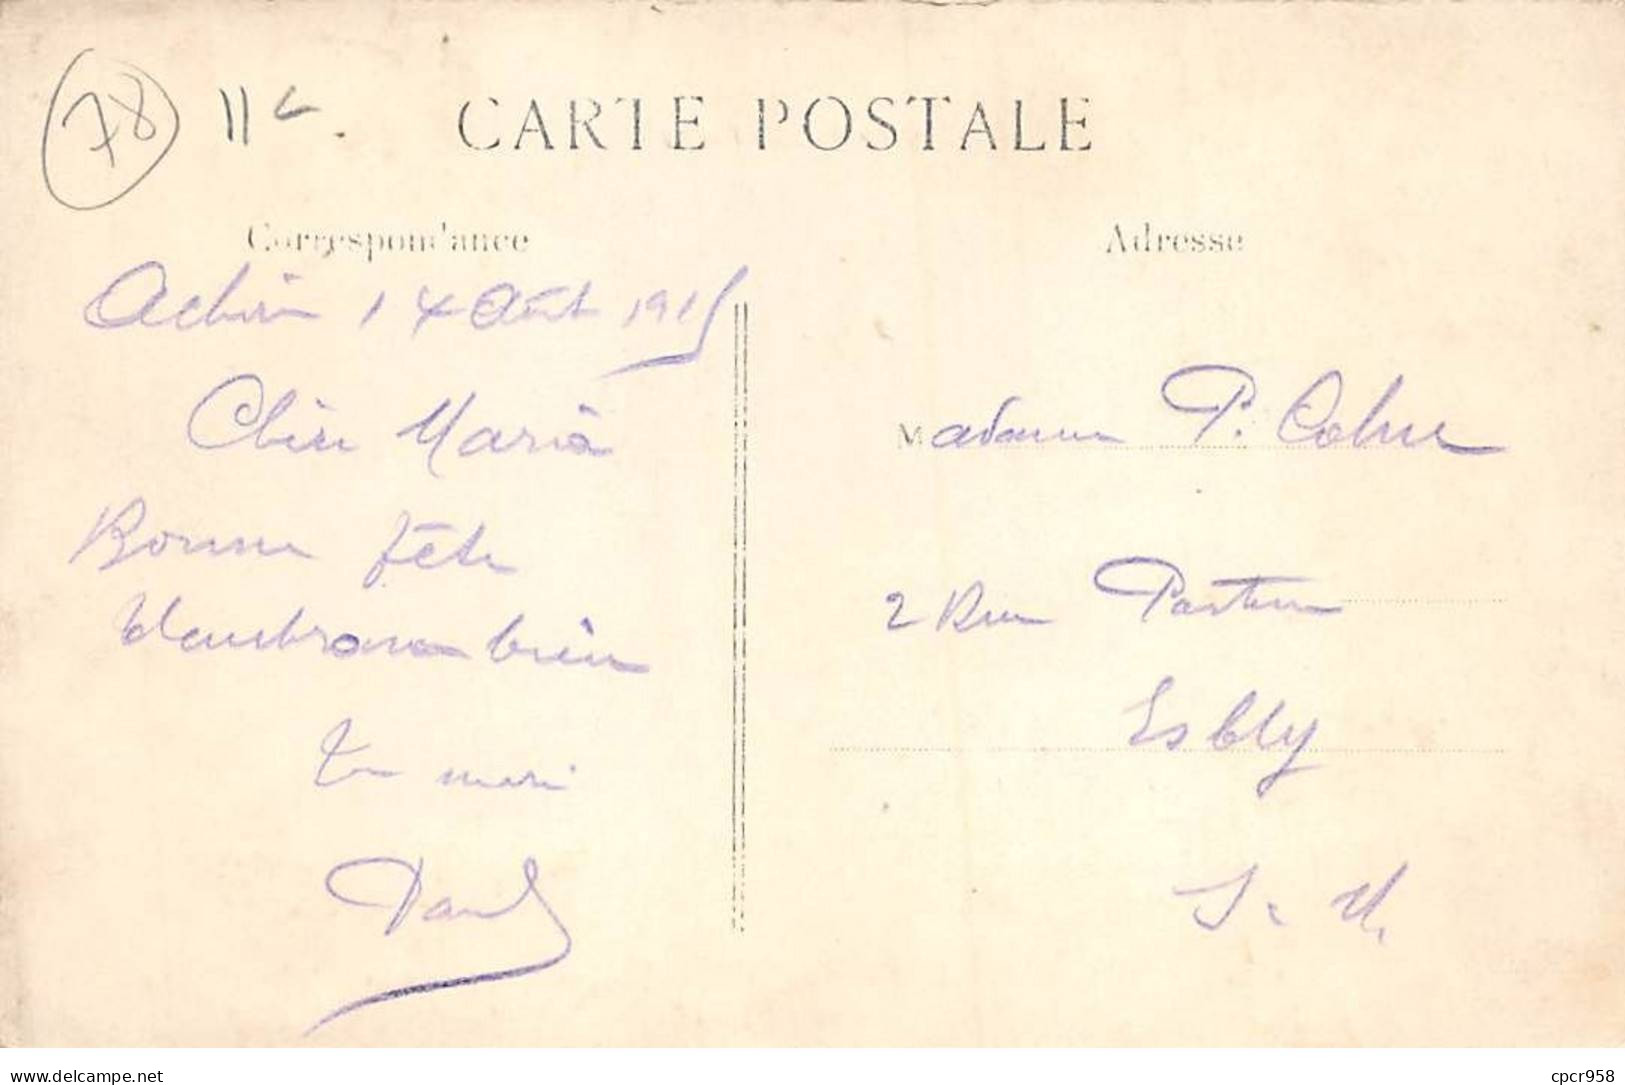 78 11
CARTE POSTALE
Correspondance
Adresse
14 Août 1915
Chère Maria
Bonne fête
bien
Ton mari
Paul
Madame P.
2 Rue Pasteur
Esbly
S. M.
www.delcampe.net
cpcr958